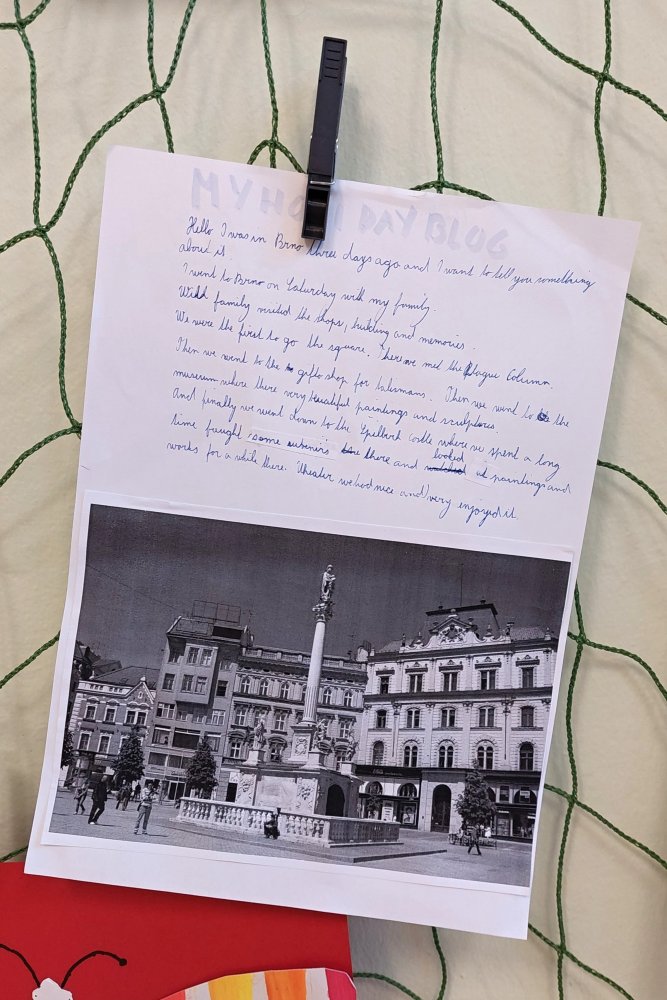 MY HO DAY BLOG
Hello I was in Brno three days ago and I want to tell you something
about it.
I went to Brno on Saturday with my family.
With family visited the shops, building and memories.
We were the first to go the square. There we met the Plague Column.
Then we went to the gifts shop for talismans. Then we went to the
museum where there very beautiful paintings and sculptores
And finally we went down to the Špilberk castle where we spent a long
time faught some suvenirs there and looked at paintings and
works for a while there. Wheater we had nice and I very enjoyed it